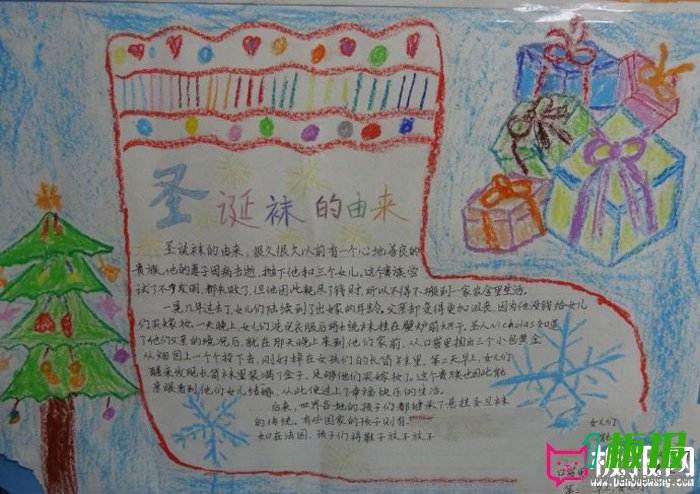 圣诞袜的由来
圣诞袜的由来，很久很久以前有一个心地善良的
贵族，他的妻子因病去逝，抛下他和三个女儿。这个贵族尝
试了不少发明，都失败了，但他因此耗尽了钱财，所以不得不搬到一家农舍里生活。
一晃几年过去了，女儿们陆续到了出嫁的年龄，父亲却变得更加沮丧，因为他没钱给女儿
们买嫁妆。一天晚上，女儿们洗完衣服后将长统袜挂在壁炉前烘干。圣人Nicholas知道
了他们父亲的境况后，就在那天晚上来到他们家前，从口袋里掏出三个小包黄金
从烟囱上一个个投下去，刚好掉在女孩们的长筒袜里。第二天早上，女儿们
醒来发现长筒袜里装满了金子，足够他们买嫁妆了。这个贵族也因此能
亲眼看到他们女儿结婚，从此便过上了幸福快乐的生活。
后来，世界各地的孩子们都继承了悬挂圣旦袜
的传统。有些国家的孩子则有
如在法国，孩子们将鞋子放
女儿们
板报网
www.banbaowang.com